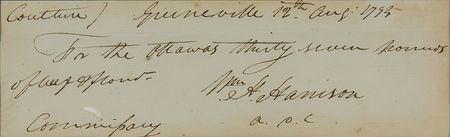 Greeneville 12th Aug: 1795
For the Ottawas thirty seven pounds
of beef & flour.
Wm H. Harrison
Commissary
a. d. c.